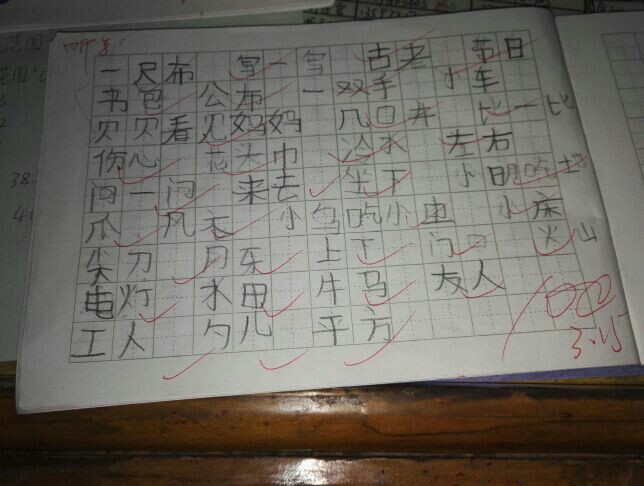 听写
一尺布 写一写 古老 节日
书包 公布 一双手 小车
贝贝看见妈妈 几口井 比一比
伤心 花头巾 冷水 左右
问一问 来去 坐下 小明吃土
爪 风天 小鸟吃小虫 小床
尖刀 月车 上下 门口 火山
电灯 水电 牛马 友人
工人 勺儿 平方
100
3.15